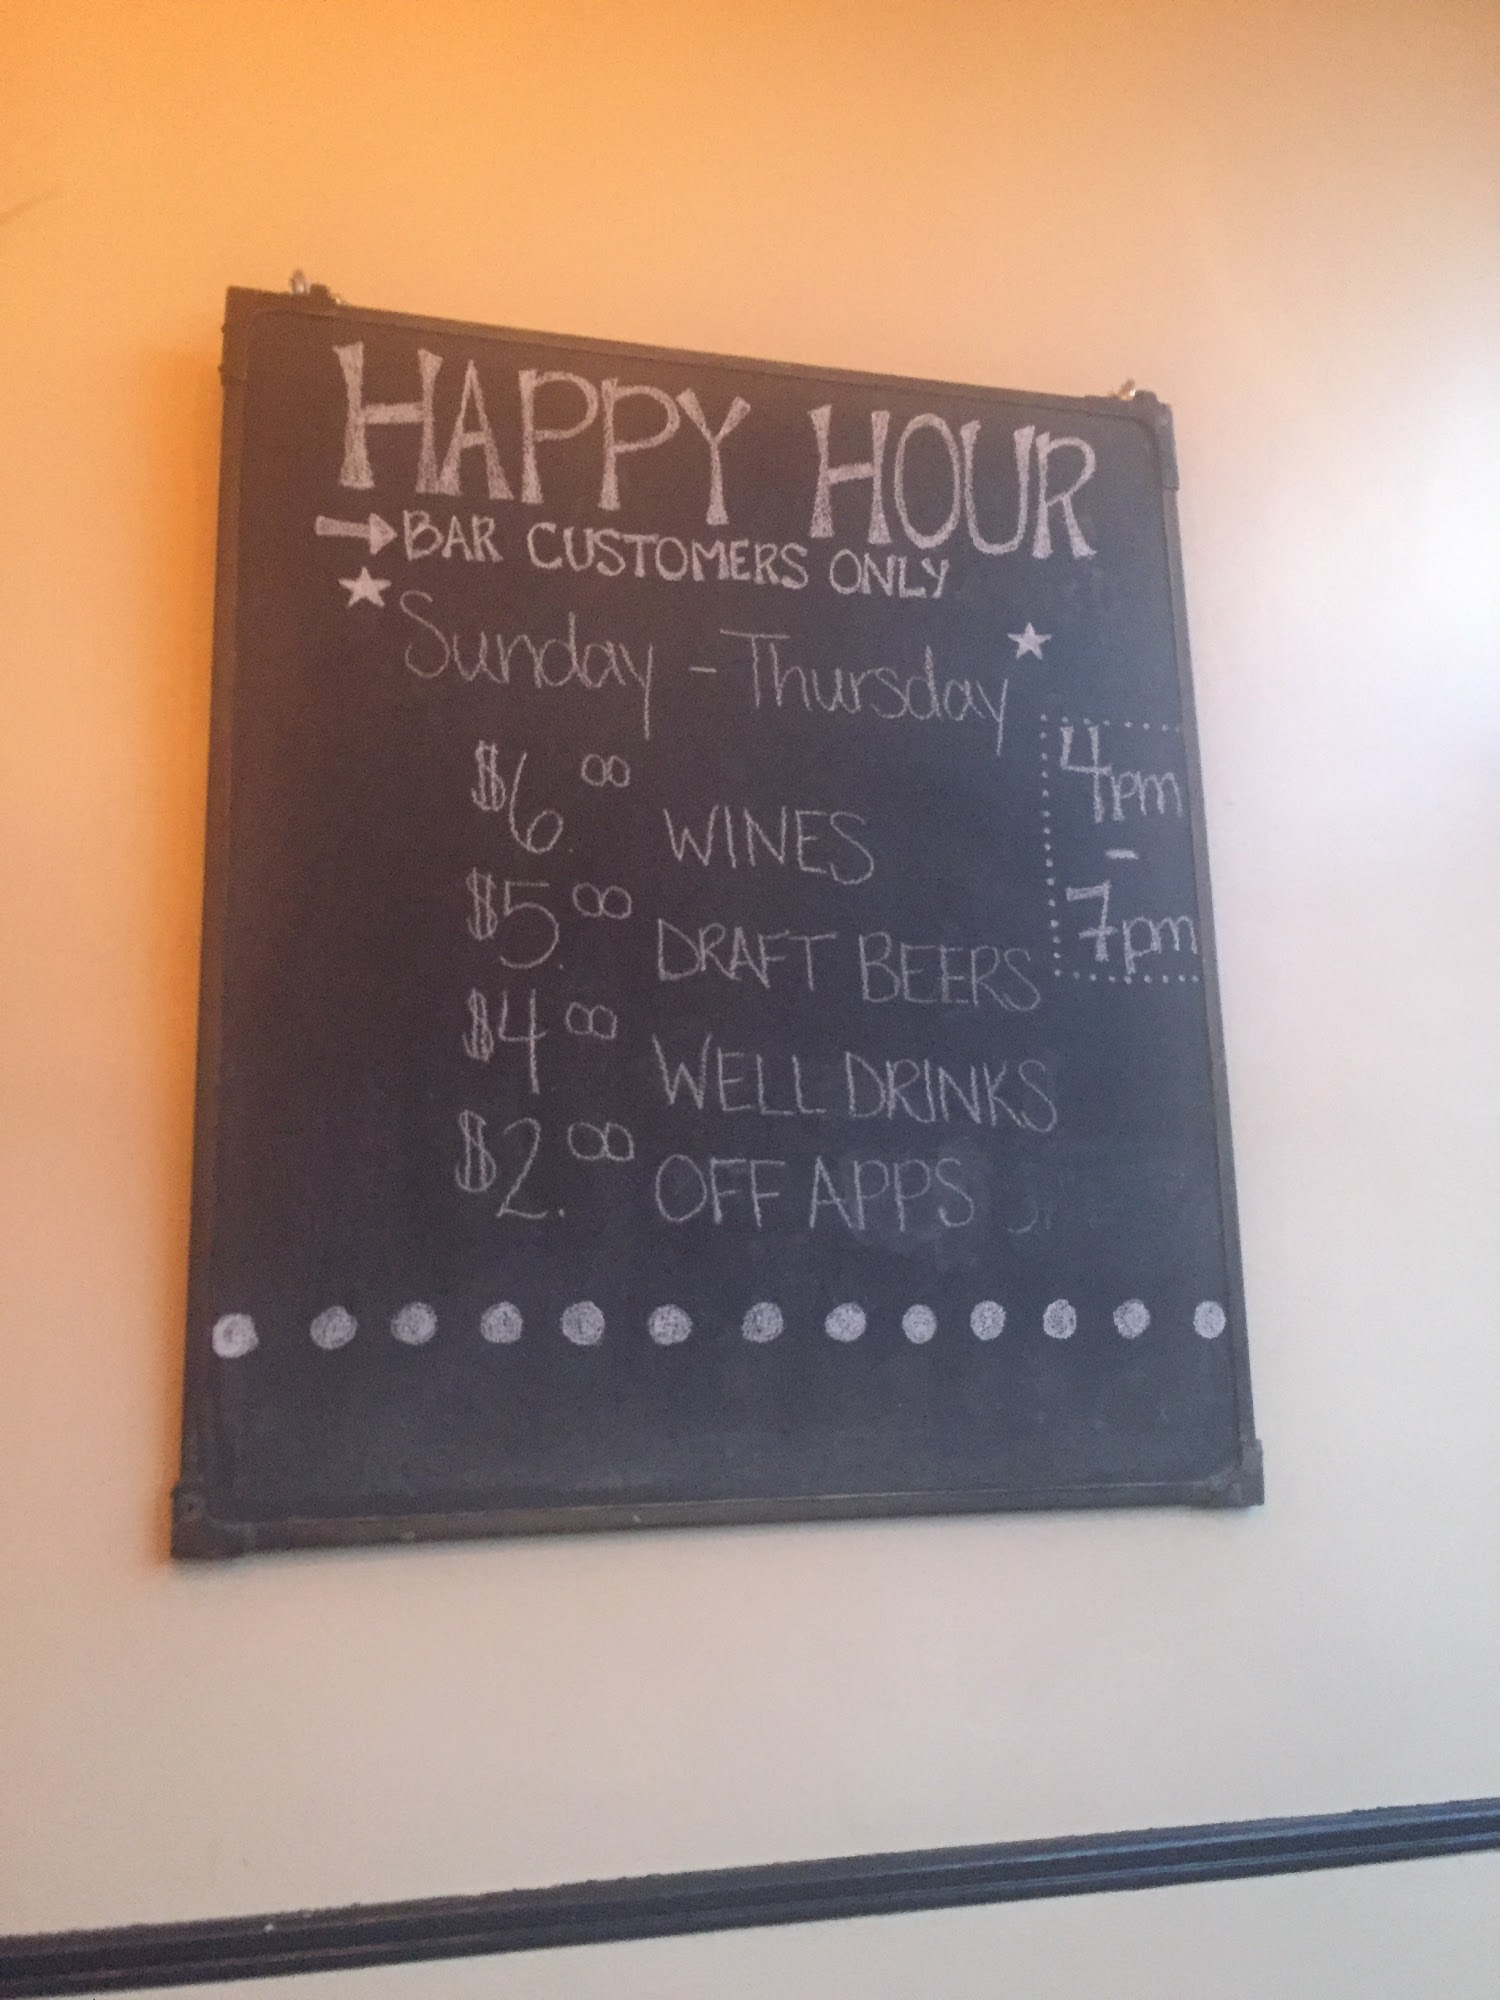 HAPPY HOUR
BAR CUSTOMERS ONLY
Sunday - Thursday
4pm
-
7pm
$6.00 WINES
$5.00 DRAFT BEERS
$4.00 WELL DRINKS
$2.00 OFF APPS